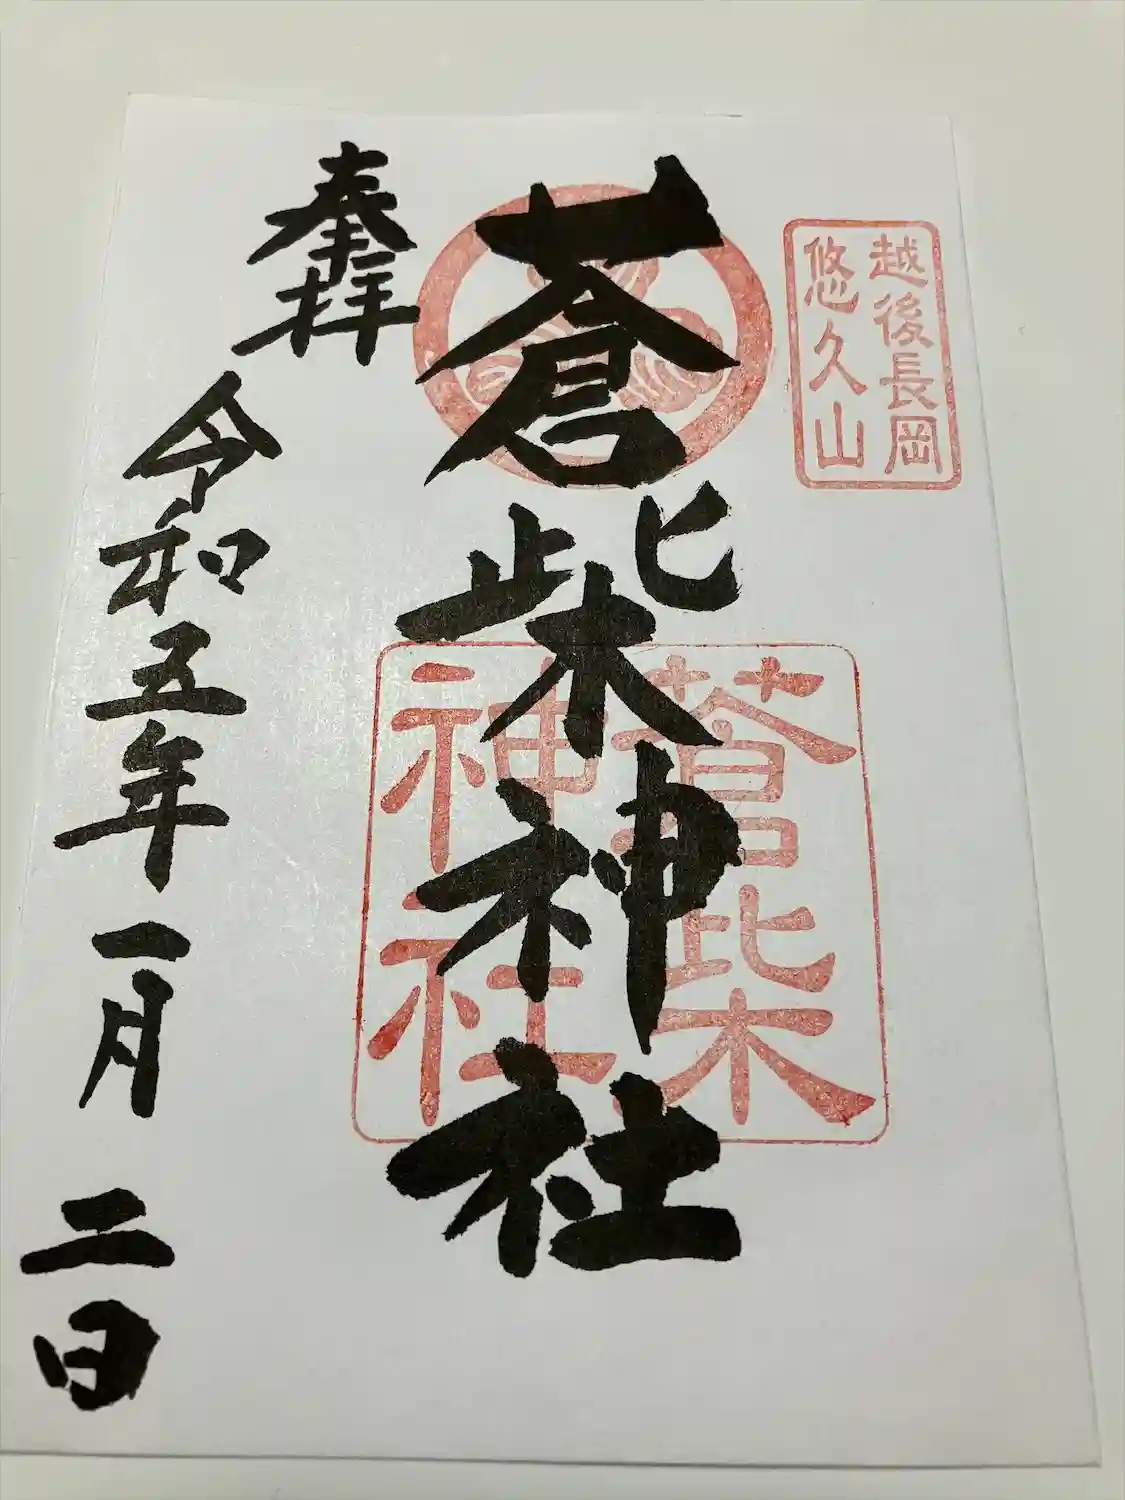 越後長岡
悠久山
蒼柴神社
蒼柴
神社
奉拝
令和五年一月二日